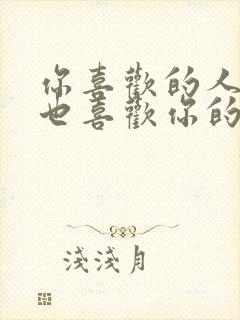 你喜歡的人
也喜歡你的
淺淺月